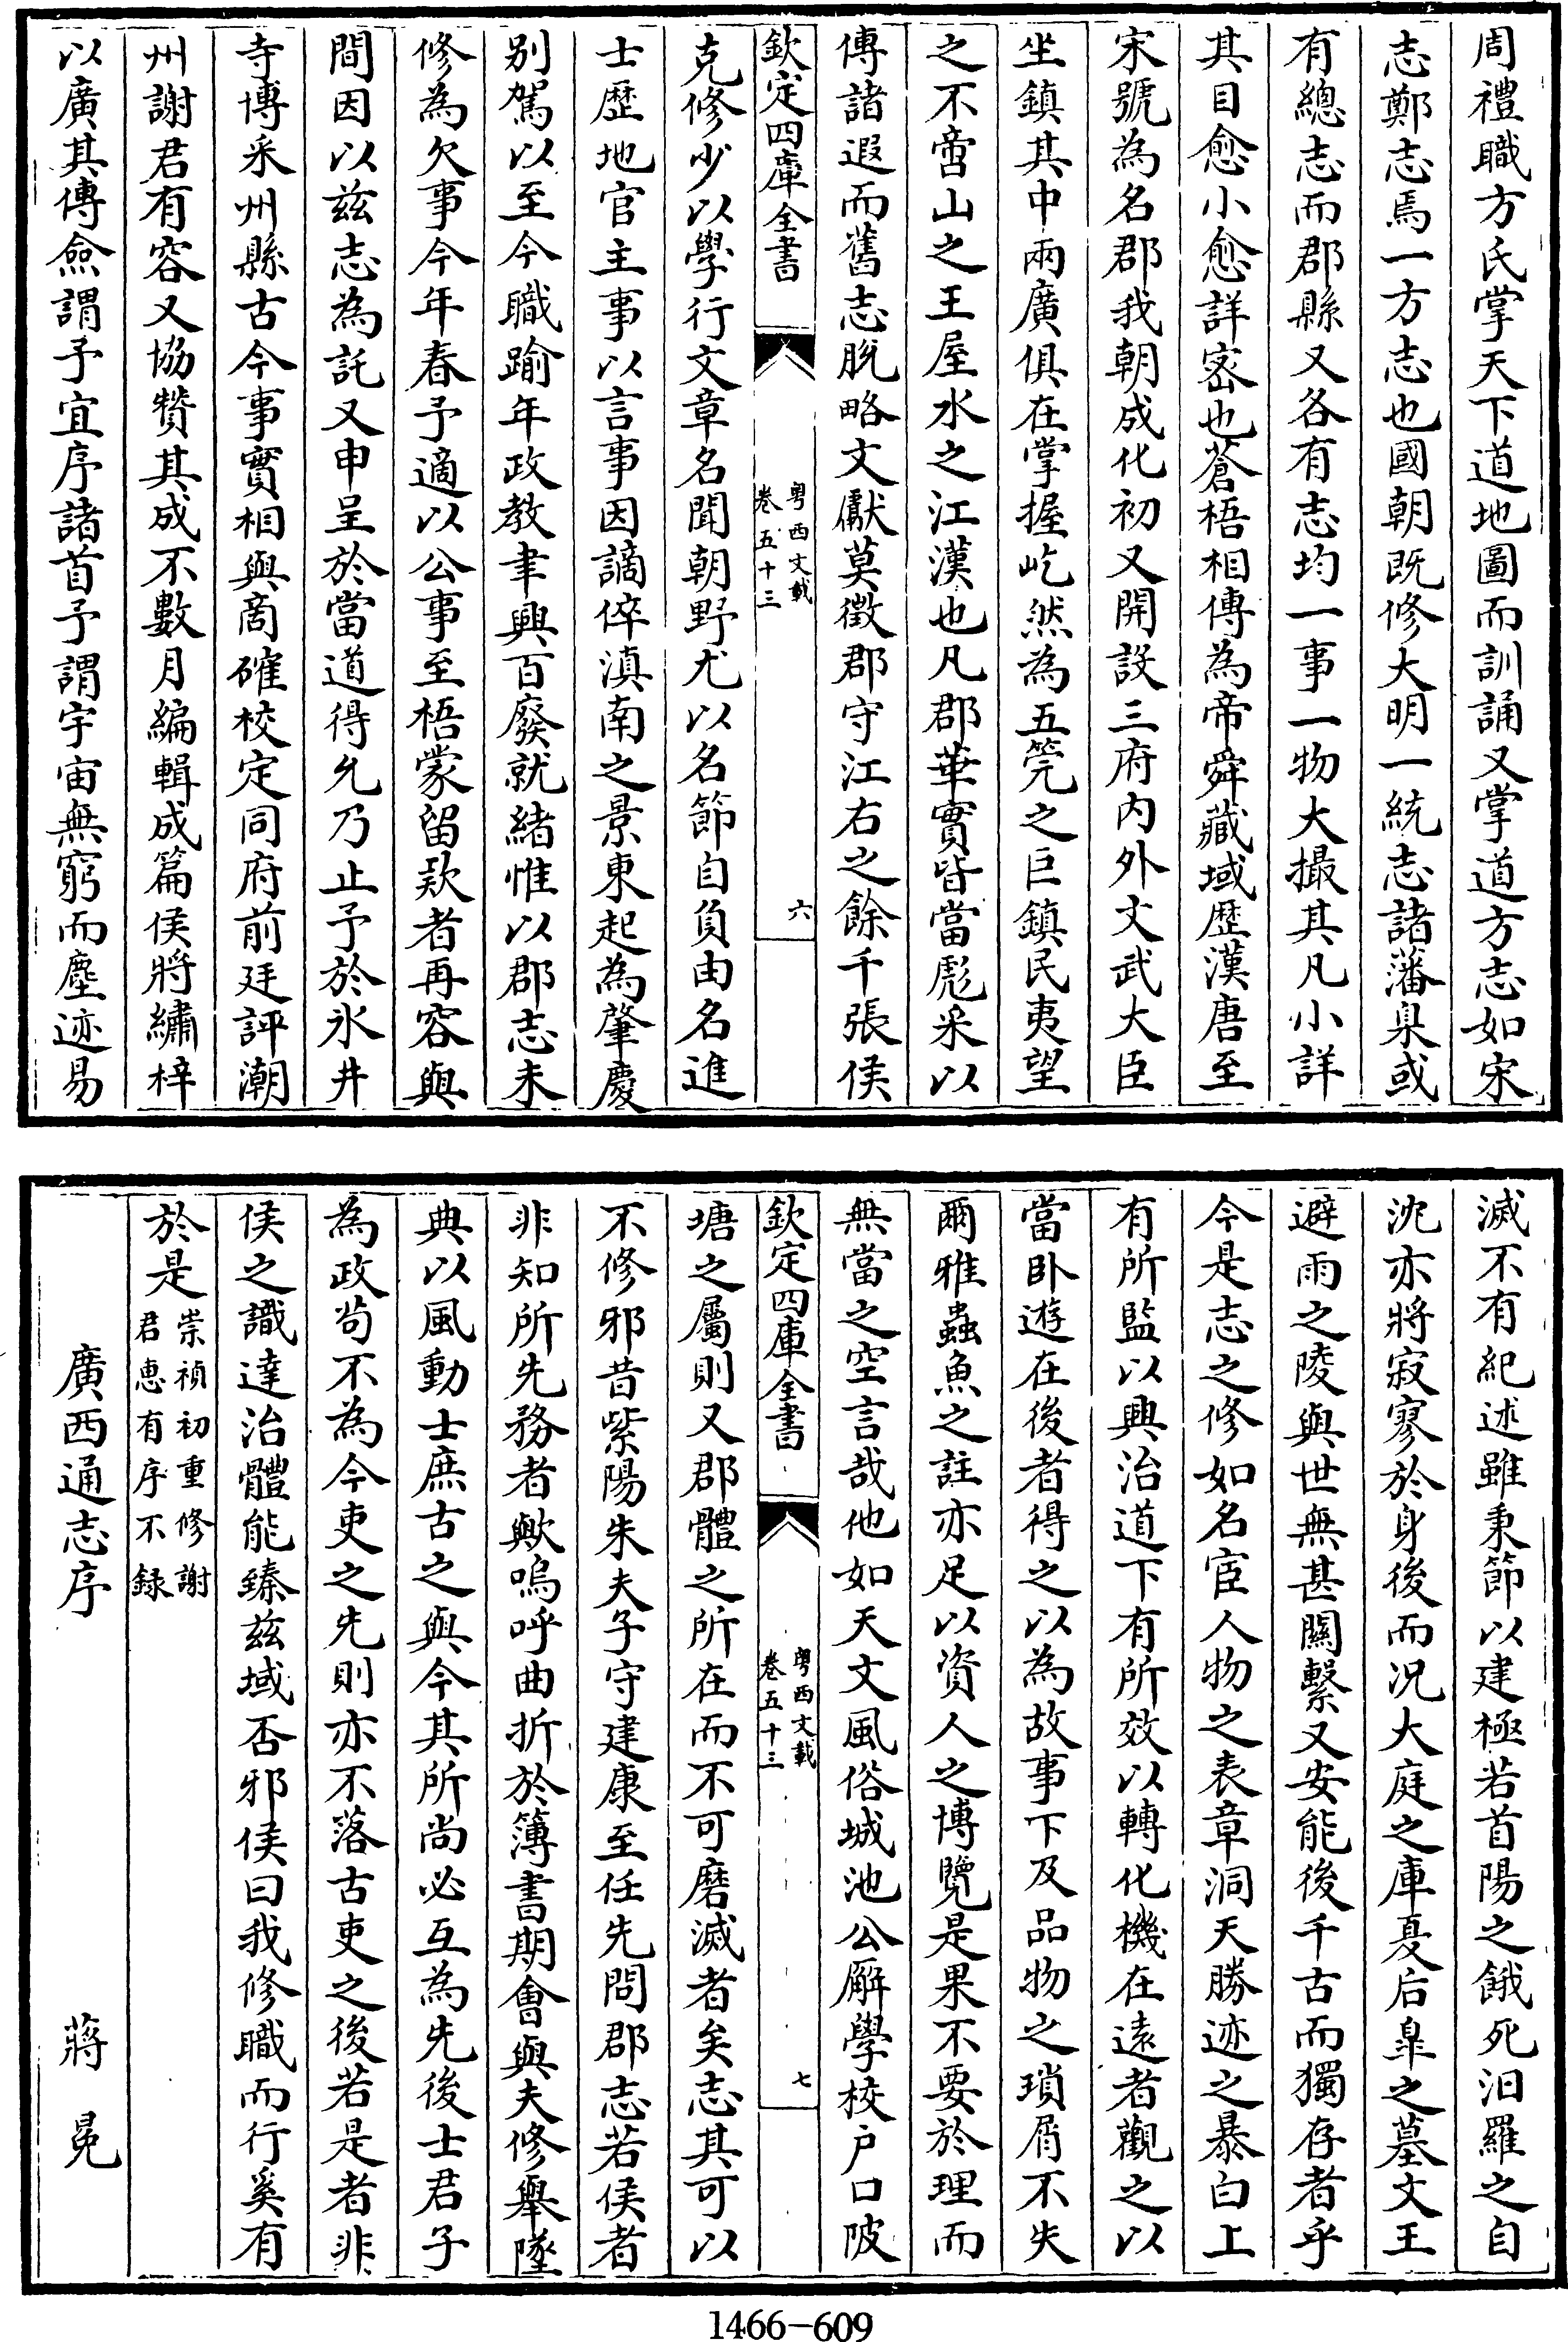 周禮職方氏掌天下道地圖而訓誦又掌道方志如宋
志鄭志焉一方志也國朝既修大明一統志諸藩臬或
有總志而郡縣又各有志均一事一物大撮其凡小詳
其目愈小愈詳密也蒼梧相傳為帝舜藏域歴漢唐至
宋號為名郡我朝成化初又開設三府内外文武大臣
坐鎮其中兩廣俱在掌握屹然為五筦之巨鎮民夷望
之不啻山之王屋水之江漢也凡郡華實皆當彪采以
傳諸遐而舊志脱略文獻莫徵郡守江右之餘千張侯
欽定四庫全書
粤西文載
卷五十三
六
克修少以學行文章名聞朝野尤以名節自負由名進
士歴地官主事以言事因謫倅滇南之景東起為肇慶
别駕以至今職踰年政教聿興百廢就緒惟以郡志未
修為欠事今年春予適以公事至梧蒙留欵者再容與
間因以兹志為託又申呈於當道得允乃止予於氷井
寺博采州縣古今事實相與商確校定同府前廷評潮
州謝君有容又協贊其成不數月編輯成篇侯將繡梓
以廣其傳僉謂予宜序諸首予謂宇宙無窮而塵迹易
滅不有紀述雖秉節以建極若首陽之餓死汨羅之自
沈亦將寂寥於身後而况大庭之庫夏后臯之墓文王
避雨之陵與世無甚關繫又安能後千古而獨存者乎
今是志之修如名宦人物之表章洞天勝迹之暴白上
有所監以興治道下有所效以轉化機在遠者觀之以
當卧遊在後者得之以為故事下及品物之瑣屑不失
爾雅蟲魚之註亦足以資人之博覽是果不要於理而
無當之空言哉他如天文風俗城池公廨學校户口陂
欽定四庫全書
粤西文載
卷五十三
七
塘之屬則又郡體之所在而不可磨滅者矣志其可以
不修邪昔紫陽朱夫子守建康至任先問郡志若侯者
非知所先務者歟嗚呼曲折於簿書期會與夫修舉墜
典以風動士庶古之與今其所尚必互為先後士君子
為政茍不為今吏之先則亦不落古吏之後若是者非
侯之識達治體能臻兹域否邪侯曰我修職而行奚有
於是崇禎初重修謝
君惠有序不録
廣西通志序 蔣冕
1466-609